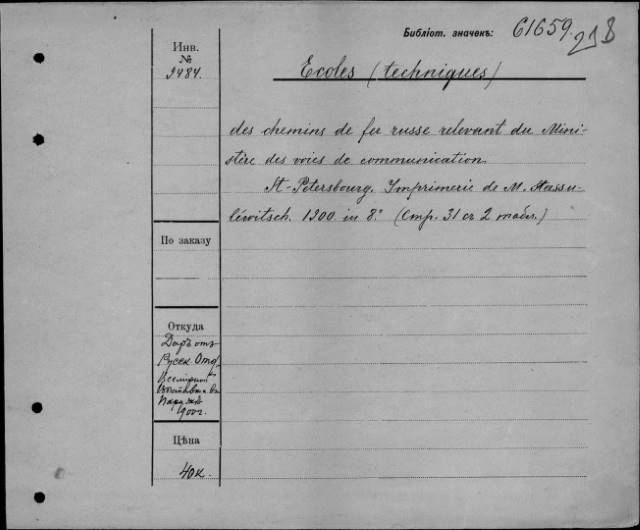 Библіот. значекъ: 61659.
Инв.
№
9484.
Ecoles (techniques)
des chemins de fer russe relevant du Mini-
stère des voies de communication.
St-Petersbourg. Imprimerie de M. Stassu-
léwitsch. 1900 in 8.° (Стр. 31 съ 2 табл.)
По заказу
Откуда
Даръ отъ
Русск. Отд.
Всемірной
Выставки въ
Парижѣ
1900 г.
Цѣна
40 к.